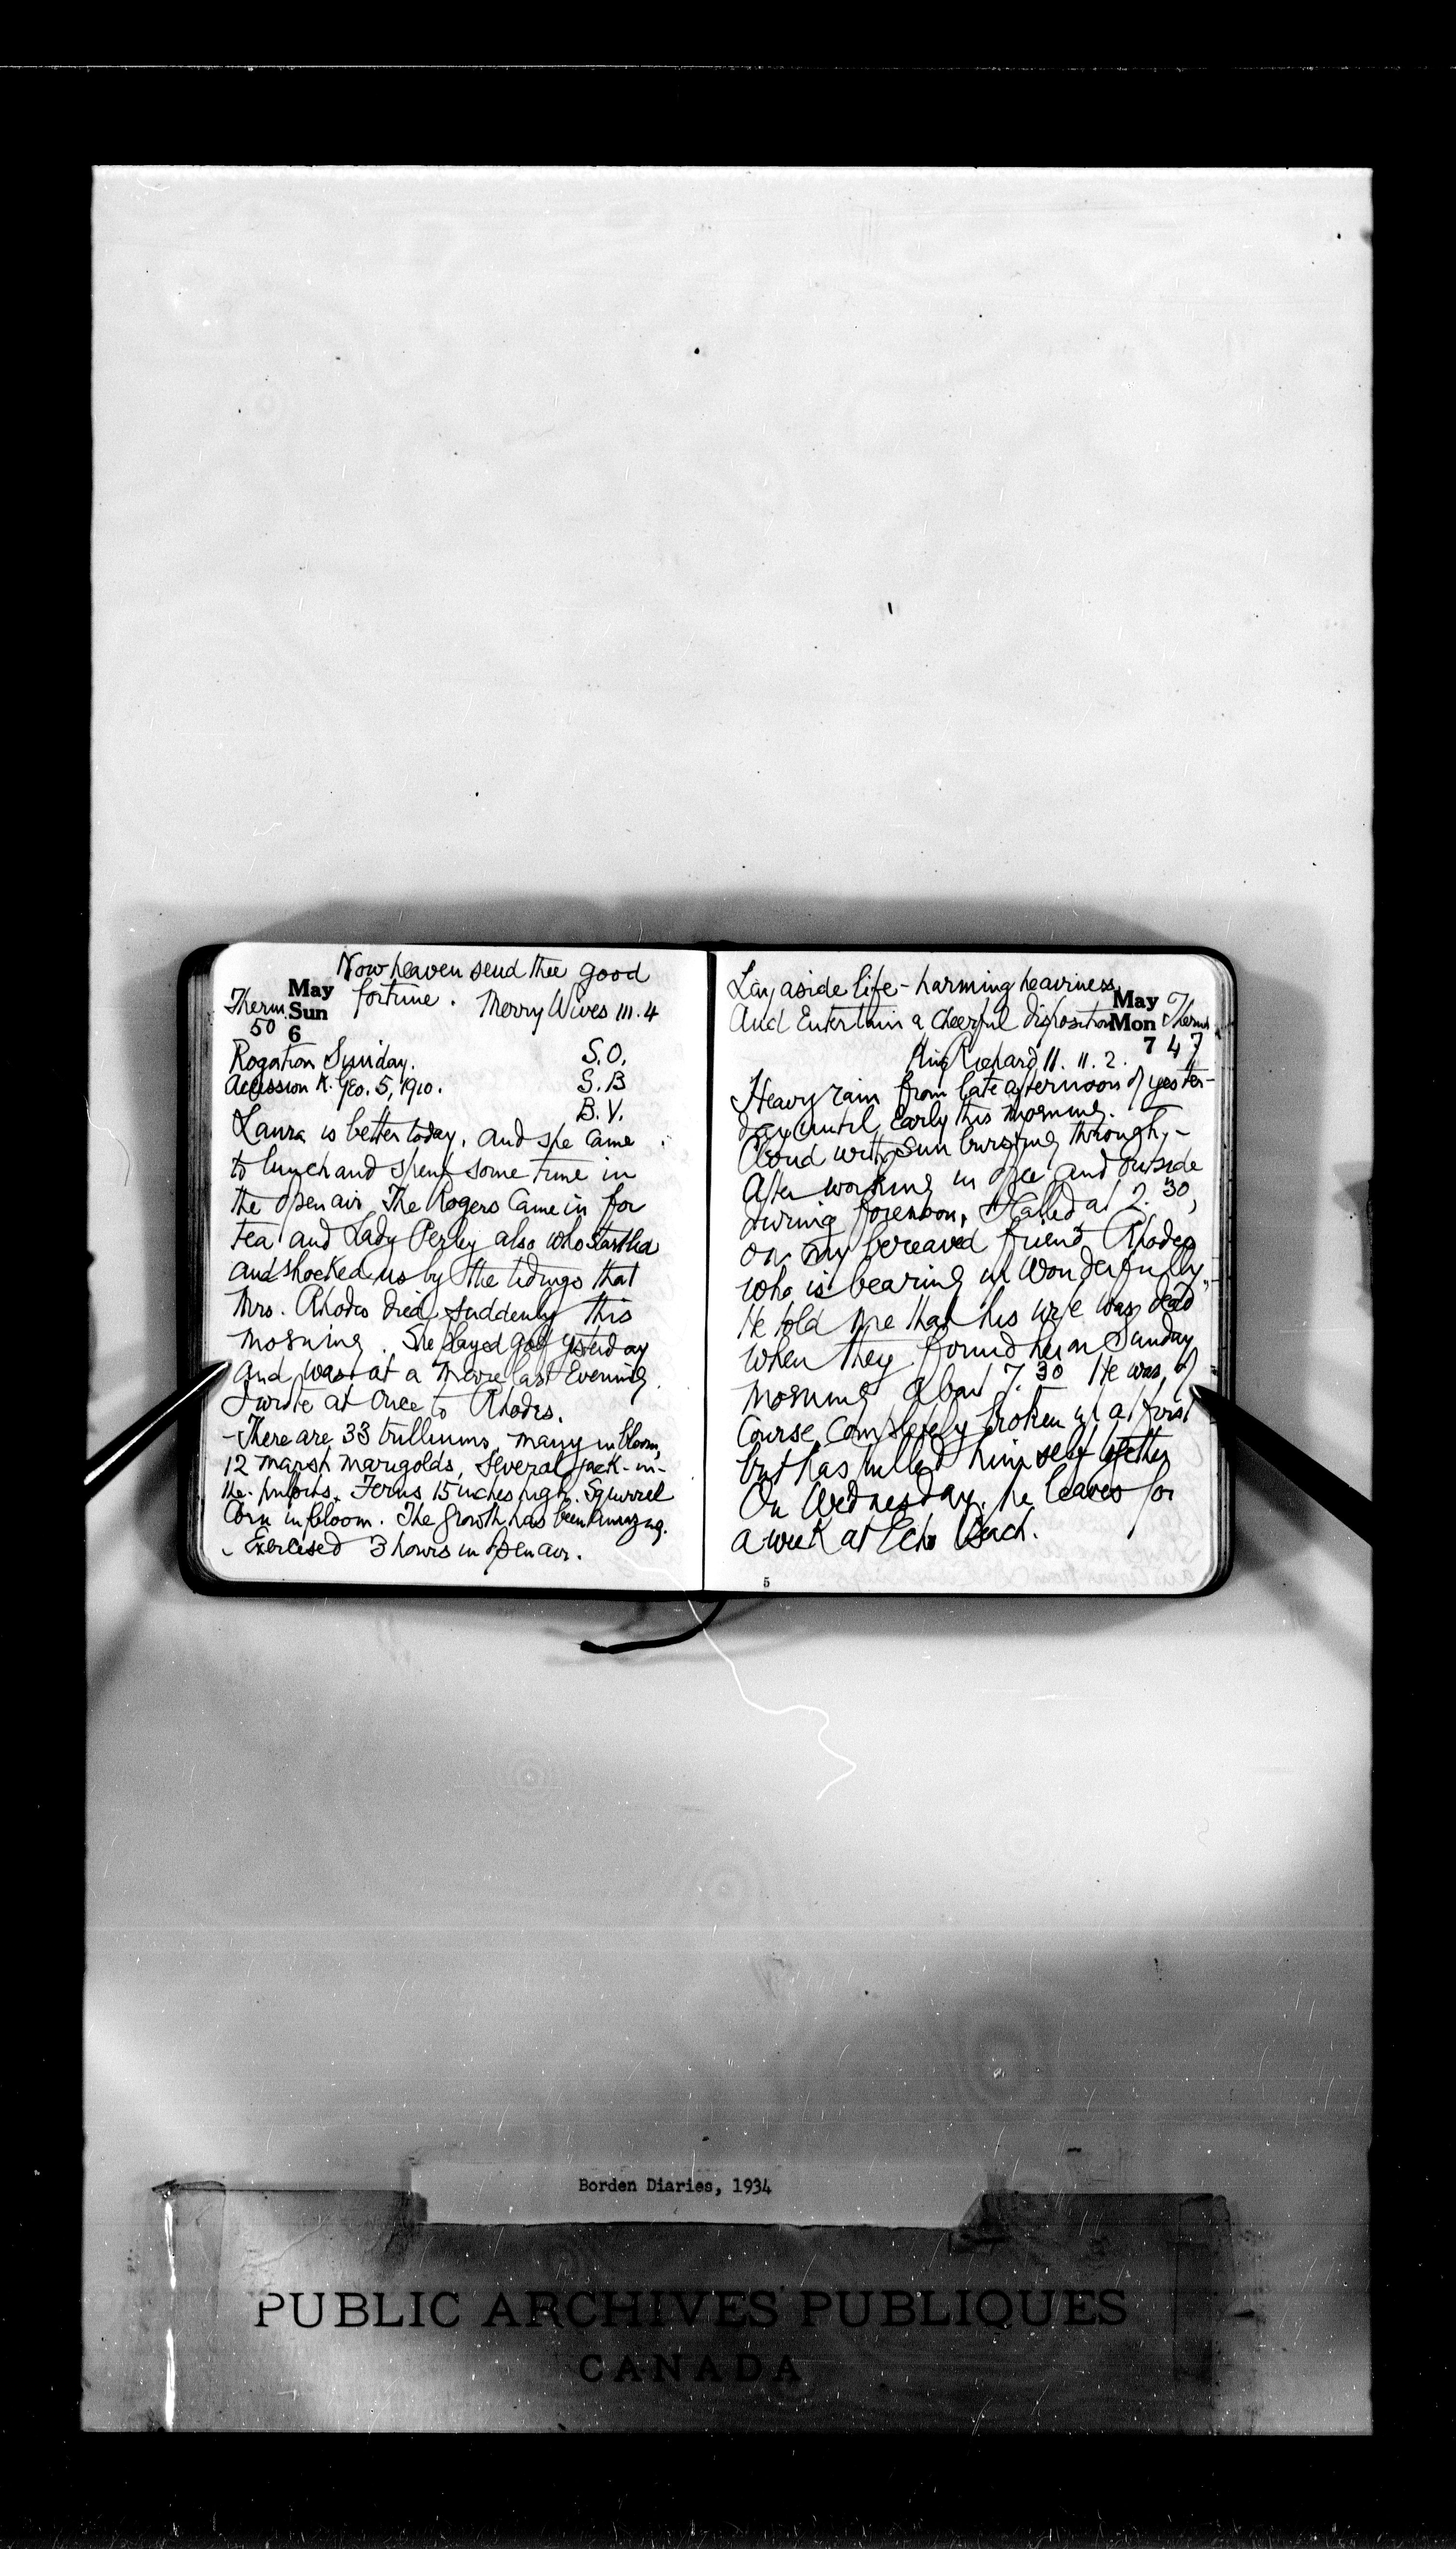 Now heaven send thee good
fortune. Merry Wives III.4
May
Sun
6
Therm.
50
Rogation Sunday. S.O.
Accession K. Geo. 5, 1910. S.B
B.V.
Laura is better today, and she came
to lunch and spent some time in
the open air. The Rogers came in for
tea and Lady Perley also who startled
and shocked us by the tidings that
Mrs. Rhodes died suddenly this
morning. She played golf yesterday
and was at a movie last Evening.
I wrote at once to Rhodes.
- There are 33 trilliums, many in bloom,
12 marsh marigolds, several jack-in-
the-pulpits. Ferns 15 inches high. Squirrel
Corn in bloom. The growth has been amazing.
Exercised 3 hours in open air.
Lay aside life-harming heaviness
And Entertain a cheerful disposition
May
Mon
7
Therm.
47
King Richard II. II. 2.
Heavy rain from late afternoon of yester-
day until early this morning.
Cloud with Sun bursting through,-
After working in office and outside
during forenoon, I called at 2.30,
on my bereaved friend Rhodes
who is bearing up wonderfully.
He told me that his wife was dead
when they found her on Sunday
morning about 7.30 He was, of
course, completely broken up at first
but has pulled himself together
On Wednesday, he leaves for
a week at Echo Beach.
5
Borden Diaries, 1934
PUBLIC ARCHIVES PUBLIQUES
CANADA